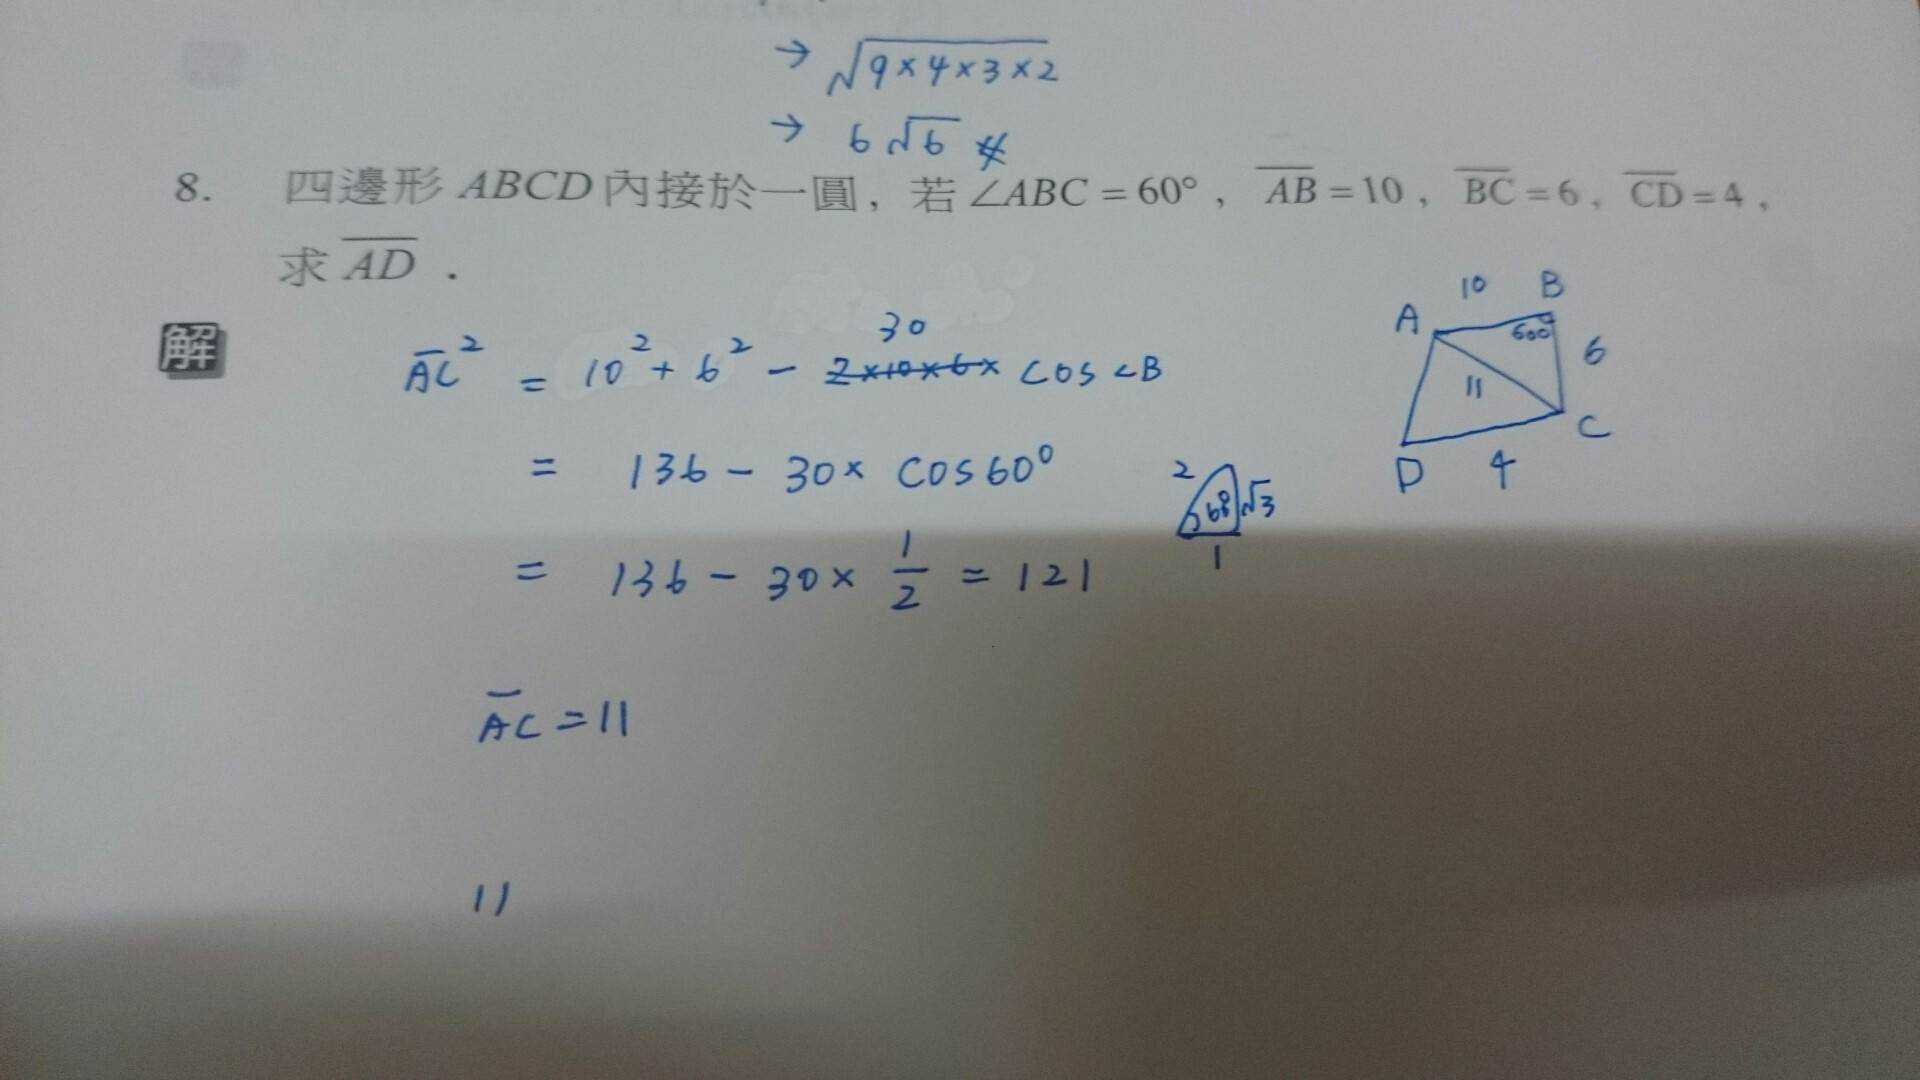 → √9×4×3×2
→ 6√6 #
8. 四邊形 ABCD 內接於一圓，若 ∠ABC = 60°，AB = 10，BC = 6，CD = 4，
求 AD．
解
30
AC² = 10² + 6² - 2×10×6× cos∠B
= 136 - 30× cos60°
= 136 - 30× 1/2 = 121
AC = 11
11
10 B
A 60° 6
11
C
D 4
2 60° √3
1